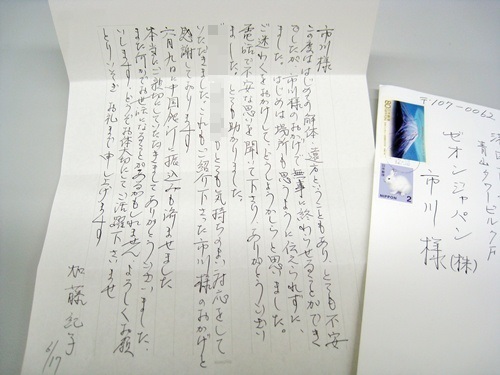 市川様
この度ははじめての解体、遠方ということもあり、とても不安
でしたが、市川様のおかげで無事に終わらせることができ
ました。はじめは場所も思うように伝えられずに、
ご迷わくをおかけしてどうしようかと思いました。
電話で不安な思いを聞いて下さりありがとうござい
ました。とても助かりました。
もとても気持ちのよい対応をして
いただきました。これもご紹介下さった市川様のおかげと
感謝しております
六月九日に中国銀行に振込みも済ませました
本当にご親切にしていただきましてありがとうございました。
また何かでお世話になることがあるかもしれません。よろしくお願
いします。どうぞお体お大切にてご活躍下さいませ
とりいそぎお礼まで申し上げます
加藤紀子
6/17
〒107-0062
青山タワービル7F
ゼオンジャパン(株)
市川様
80
NIPPON
2